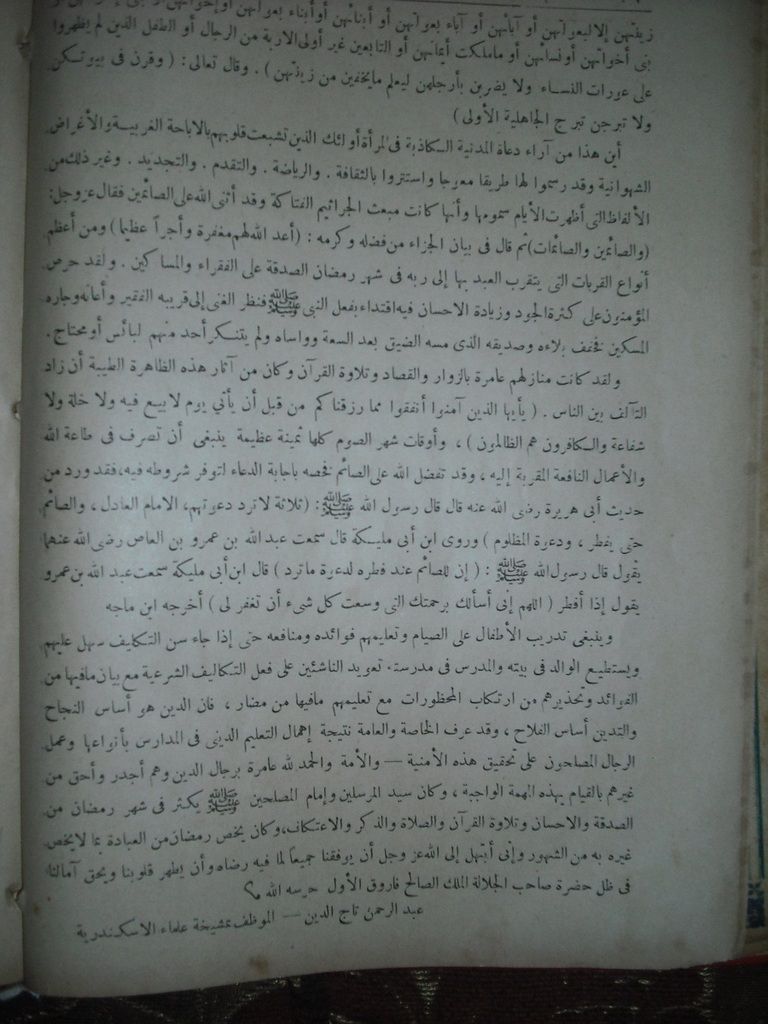 زينتهن إلا لبعولتهن أو آبائهن أو آباء بعولتهن أو أبنائهن أو أبناء بعولتهن أو إخوانهن
بنى أخواتهن أو نسائهن أو ماملكت أيمانهن أو التابعين غير أولى الاربة من الرجال أو الطفل الذين لم يظهروا
على عورات النساء ولا يضربن بأرجلهن ليعلم مايخفين من زينتهن ) . وقال تعالى : ( وقرن فى بيوتكن
ولا تبرجن تبرج الجاهلية الأولى )
أين هذا من آراء دعاة المدنية الكاذبة فى المرأة أولئك الذين تشبعت قلوبهم بالاباحة الغربية والأغراض
الشهوانية وقد رسموا لها طريقا معوجا واستتروا بالثقافة . والرياضة . والتقدم . والتجديد . وغير ذلك من
الألفاظ التى أظهرت الأيام سمومها وأنها كانت مبعث الجراثيم الفتاكة وقد أثنى الله على الصائمين فقال عز وجل :
(والصائمين والصائمات) ثم قال فى بيان الجزاء من فضله وكرمه : (أعد الله لهم مغفرة وأجراً عظيما) ومن أعظم
أنواع القربات التى يتقرب العبد بها إلى ربه فى شهر رمضان الصدقة على الفقراء والمساكين . ولقد حرص
المؤمنون على كثرة الجود وزيادة الاحسان فيه اقتداء بفعل النبى ﷺ فنظر الغنى إلى قريبه الفقير وأعانه وجاره
المسكين فخفف بلاءه وصديقه الذى مسه الضيق بعد السعة وواساه ولم يتنكر أحد منهم لبائس أو محتاج .
ولقد كانت منازلهم عامرة بالزوار والقصاد وتلاوة القرآن وكان من آثار هذه الظاهرة الطيبة أن زاد
التآلف بين الناس . ( يأيها الذين آمنوا أنفقوا مما رزقناكم من قبل أن يأتى يوم لا بيع فيه ولا خلة ولا
شفاعة والكافرون هم الظالمون ) ، وأوقات شهر الصوم كلها ثمينة عظيمة ينبغى أن تصرف فى طاعة الله
والأعمال النافعة المقربة إليه ، وقد تفضل الله على الصائم فخصه باجابة الدعاء لتوفر شروطه فيه ، فقد ورد من
حديث أبى هريرة رضى الله عنه قال قال رسول الله ﷺ : (ثلاثة لا ترد دعوتهم ، الامام العادل ، والصائم
حتى يفطر ، ودعوة المظلوم ) وروى ابن أبى مليكة قال سمعت عبد الله بن عمرو بن العاص رضى الله عنهما
يقول قال رسول الله ﷺ : ( إن للصائم عند فطره لدعوة ماترد ) قال ابن أبى مليكة سمعت عبد الله بن عمرو
يقول إذا أفطر ( اللهم إنى أسألك برحمتك التى وسعت كل شىء أن تغفر لى ) أخرجه ابن ماجه
وينبغى تدريب الأطفال على الصيام وتعليمهم فوائده ومنافعه حتى إذا جاء سن التكليف سهل عليهم
ويستطيع الوالد فى بيته والمدرس فى مدرسته تعويد الناشئين على فعل التكاليف الشرعية مع بيان مافيها من
الفوائد وتحذيرهم من ارتكاب المحظورات مع تعليمهم مافيها من مضار ، فان الدين هو أساس النجاح
والتدين أساس الفلاح ، وقد عرف الخاصة والعامة نتيجة إهمال التعليم الدينى فى المدارس بأنواعها وعمل
الرجال المصلحون على تحقيق هذه الأمنية — والأمة والحمد لله عامرة برجال الدين وهم أجدر وأحق من
غيرهم بالقيام بهذه المهمة الواجبة ، وكان سيد المرسلين وإمام المصلحين ﷺ يكثر فى شهر رمضان من
الصدقة والاحسان وتلاوة القرآن والصلاة والذكر والاعتكاف ، وكان يخص رمضان من العبادة بما لا يخص
غيره به من الشهور وإنى أبتهل إلى الله عز وجل أن يوفقنا جميعاً لما فيه رضاه وأن يطهر قلوبنا ويحق آمالنا
فى ظل حضرة صاحب الجلالة الملك الصالح فاروق الأول حرسه الله
عبد الرحمن تاج الدين — الموظف بمشيخة علماء الاسكندرية